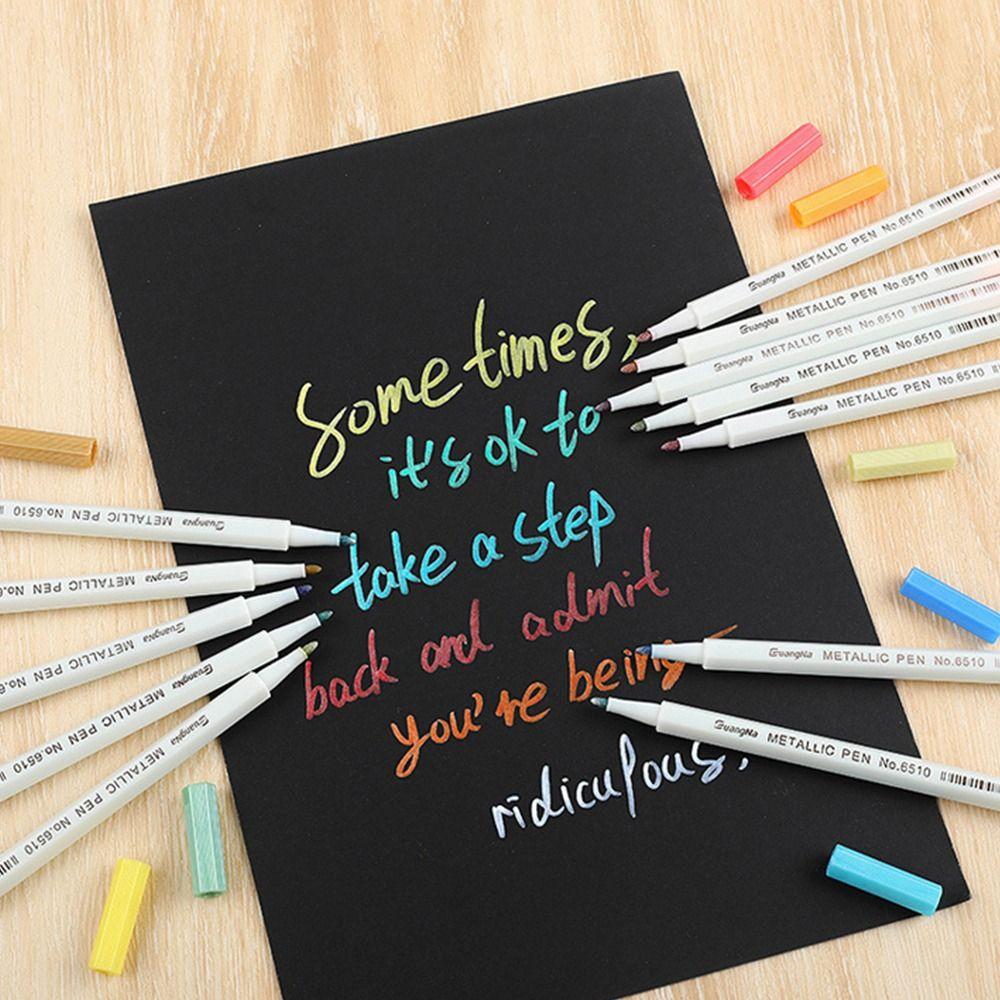 Sometimes,
it's ok to
take a step
back and admit
you're being
ridiculpous.
GuangNa METALLIC PEN No.6510
GuangNa METALLIC PEN No.6510
GuangNa METALLIC PEN No.6510
GuangNa METALLIC PEN No.6510
GuangNa METALLIC PEN No.6510
GuangNa METALLIC PEN No.6510
GuangNa METALLIC PEN No.6510
GuangNa METALLIC PEN No.6510
GuangNa METALLIC PEN No.6
GuangNa METALLIC PEN No.6510
GuangNa METALLIC PEN No.6510
GuangNa METALLIC PEN No.6510